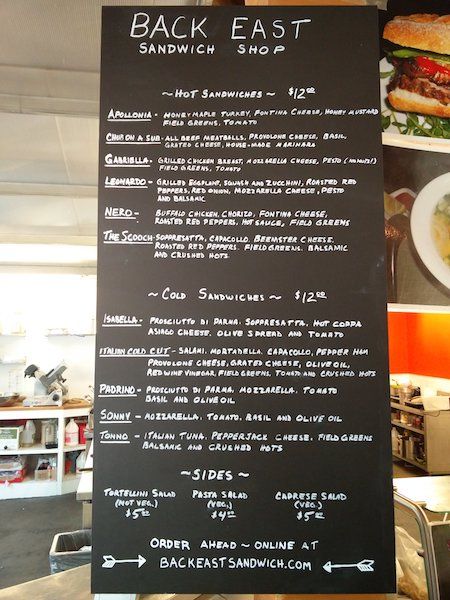 BACK EAST
SANDWICH SHOP
~ HOT SANDWICHES ~ $12.00
APOLLONIA - HONEY MAPLE TURKEY, FONTINA CHEESE, HONEY MUSTARD
FIELD GREENS, TOMATO
- ALL BEEF MEATBALLS, PROVOLONE CHEESE, BASIL,
GRATED CHEESE, HOUSE-MADE MARINARA
GABRIELLA - GRILLED CHICKEN BREAST, MOZZARELLA CHEESE, PESTO (NO NUTS!)
FIELD GREENS, TOMATO
LEONARDO - GRILLED EGGPLANT, SQUASH AND ZUCCHINI, ROASTED RED
PEPPERS, RED ONION, MOZZARELLA CHEESE, PESTO
AND BALSAMIC
NERO - BUFFALO CHICKEN, CHORIZO, FONTINA CHEESE,
ROASTED RED PEPPERS, HOT SAUCE, FIELD GREENS
THE SCOOCH - SOPPRESATTA, CAPACOLLO, BEEMSTER CHEESE,
ROASTED RED PEPPERS, FIELD GREENS, BALSAMIC
AND CRUSHED HOTS
~ COLD SANDWICHES ~ $12.00
ISABELLA - PROSCIUTTO DI PARMA, SOPPRESATTA, HOT COPPA
ASIAGO CHEESE, OLIVE SPREAD AND TOMATO
ITALIAN COLD CUT - SALAMI, MORTADELLA, CAPACOLLO, PEPPER HAM
PROVOLONE CHEESE, GRATED CHEESE, OLIVE OIL,
RED WINE VINEGAR, FIELD GREENS, TOMATO AND CRUSHED HOTS
PADRINO - PROSCIUTTO DI PARMA, MOZZARELLA, TOMATO
BASIL AND OLIVE OIL
SONNY - MOZZARELLA, TOMATO, BASIL AND OLIVE OIL
TONNO - ITALIAN TUNA, PEPPERJACK CHEESE, FIELD GREENS
BALSAMIC AND CRUSHED HOTS
~ SIDES ~
TORTELLINI SALAD PASTA SALAD CAPRESE SALAD
(NOT VEG.) (VEG.) (VEG.)
$5.00 $4.00 $5.00
ORDER AHEAD ~ ONLINE AT
BACKEASTSANDWICH.COM